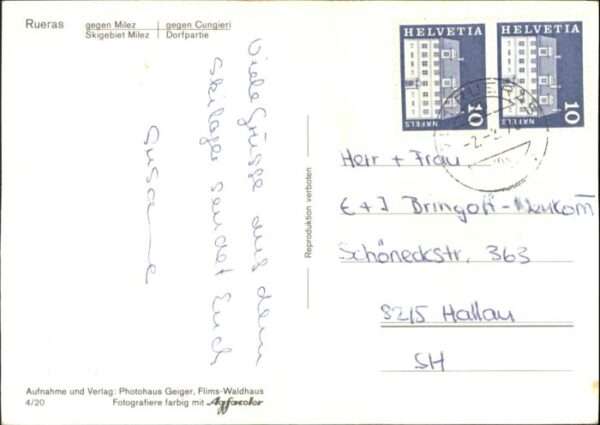 Rueras
gegen Milez | gegen Cungieri
Skigebiet Milez | Dorfpartie
HELVETIA
10
NÄFELS
HELVETIA
10
NÄFELS
RUERAS
Viele Grüsse aus dem
Skilager sendet Euch
Susanne
Reproduktion verboten
Herr + Frau
E + J Bringolf-Neukom
Schöneckstr. 363
8215 Hallau
SH
Aufnahme und Verlag: Photohaus Geiger, Flims-Waldhaus
4/20
Fotografiere farbig mit Agfacolor